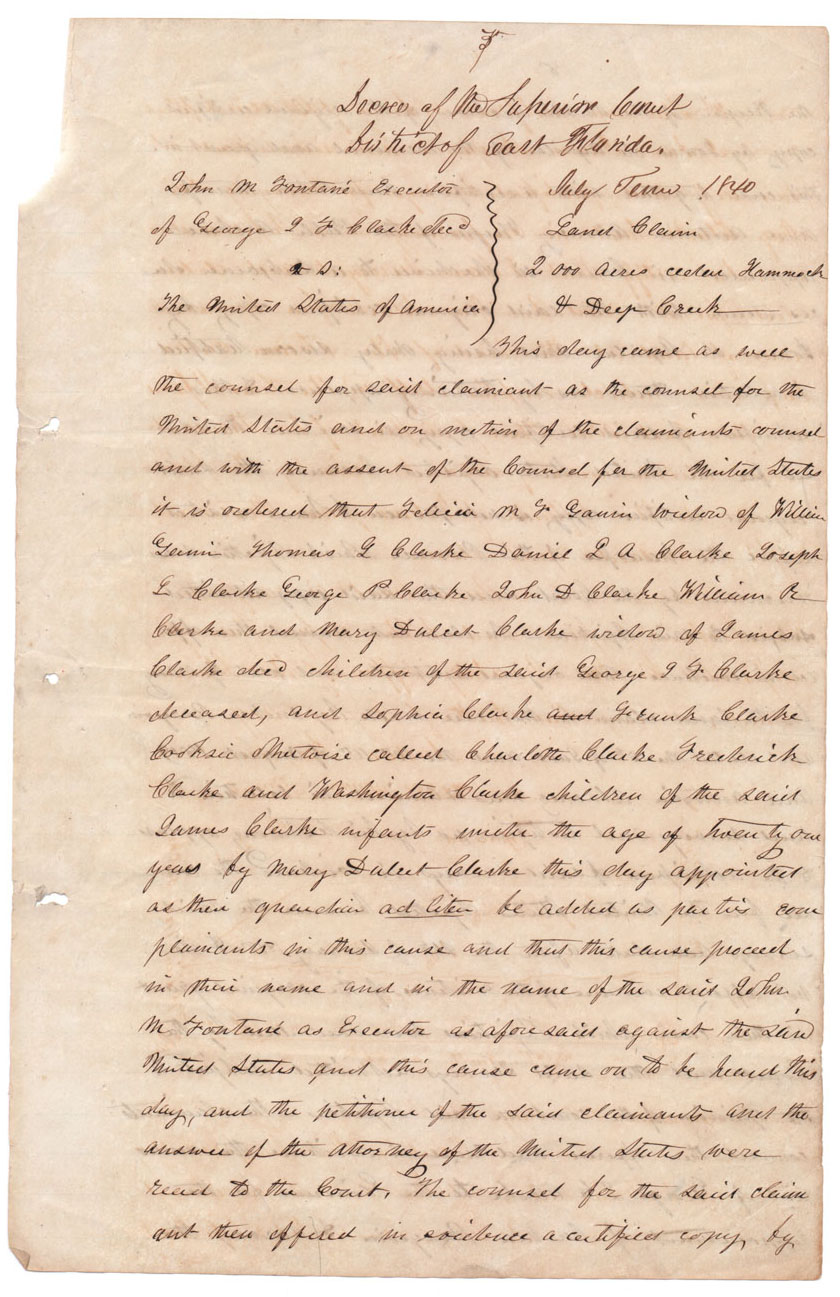 Decree of the Superior Court
District of East Florida.
John M Fontané Executor
of George I F Clarke decd
vs:
The United States of America
July Term 1840
Land Claim
2000 Acres cedar Hammock
& Deep Creek
This day came as well
the counsel for said claimant as the counsel for the
United States and on motion of the claimants counsel
and with the assent of the Counsel for the United States
it is ordered that Felicia M F Garvin widow of William
Garvin Thomas G Clarke Daniel D A Clarke Joseph
L Clarke George P Clarke John D Clarke William R
Clarke and Mary Dulcet Clarke widow of James
Clarke decd children of the said George I F Clarke
deceased, and Sophia Clarke and Frank Clarke
Cooksie otherwise called Charlotte Clarke Frederick
Clarke and Washington Clarke children of the said
James Clarke infants under the age of twenty one
years by Mary Dulcet Clarke this day appointed
as their guardian ad liten be added as partis com
plainants in this cause and that this cause proceed
in their name and in the name of the said John
M. Fontané as Executor as aforesaid against the said
United States and this cause came on to be heard this
day, and the petitioner of the said claimants and the
answer of the attorney of the United States were
read to the Court, The counsel for the said claim
ant then offered in evidence a certified copy, by